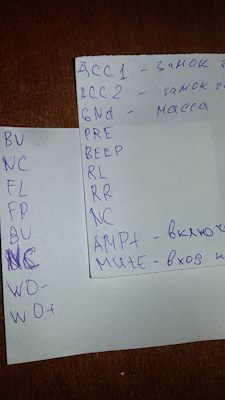 ACC1 - замок
ACC2 - замок
GNd - масса
PRE
BEEP
RL
RR
NC
AMP+ - включ
MUtE - вход
BU
NC
FL
FP
BU
NC
WO-
WO+